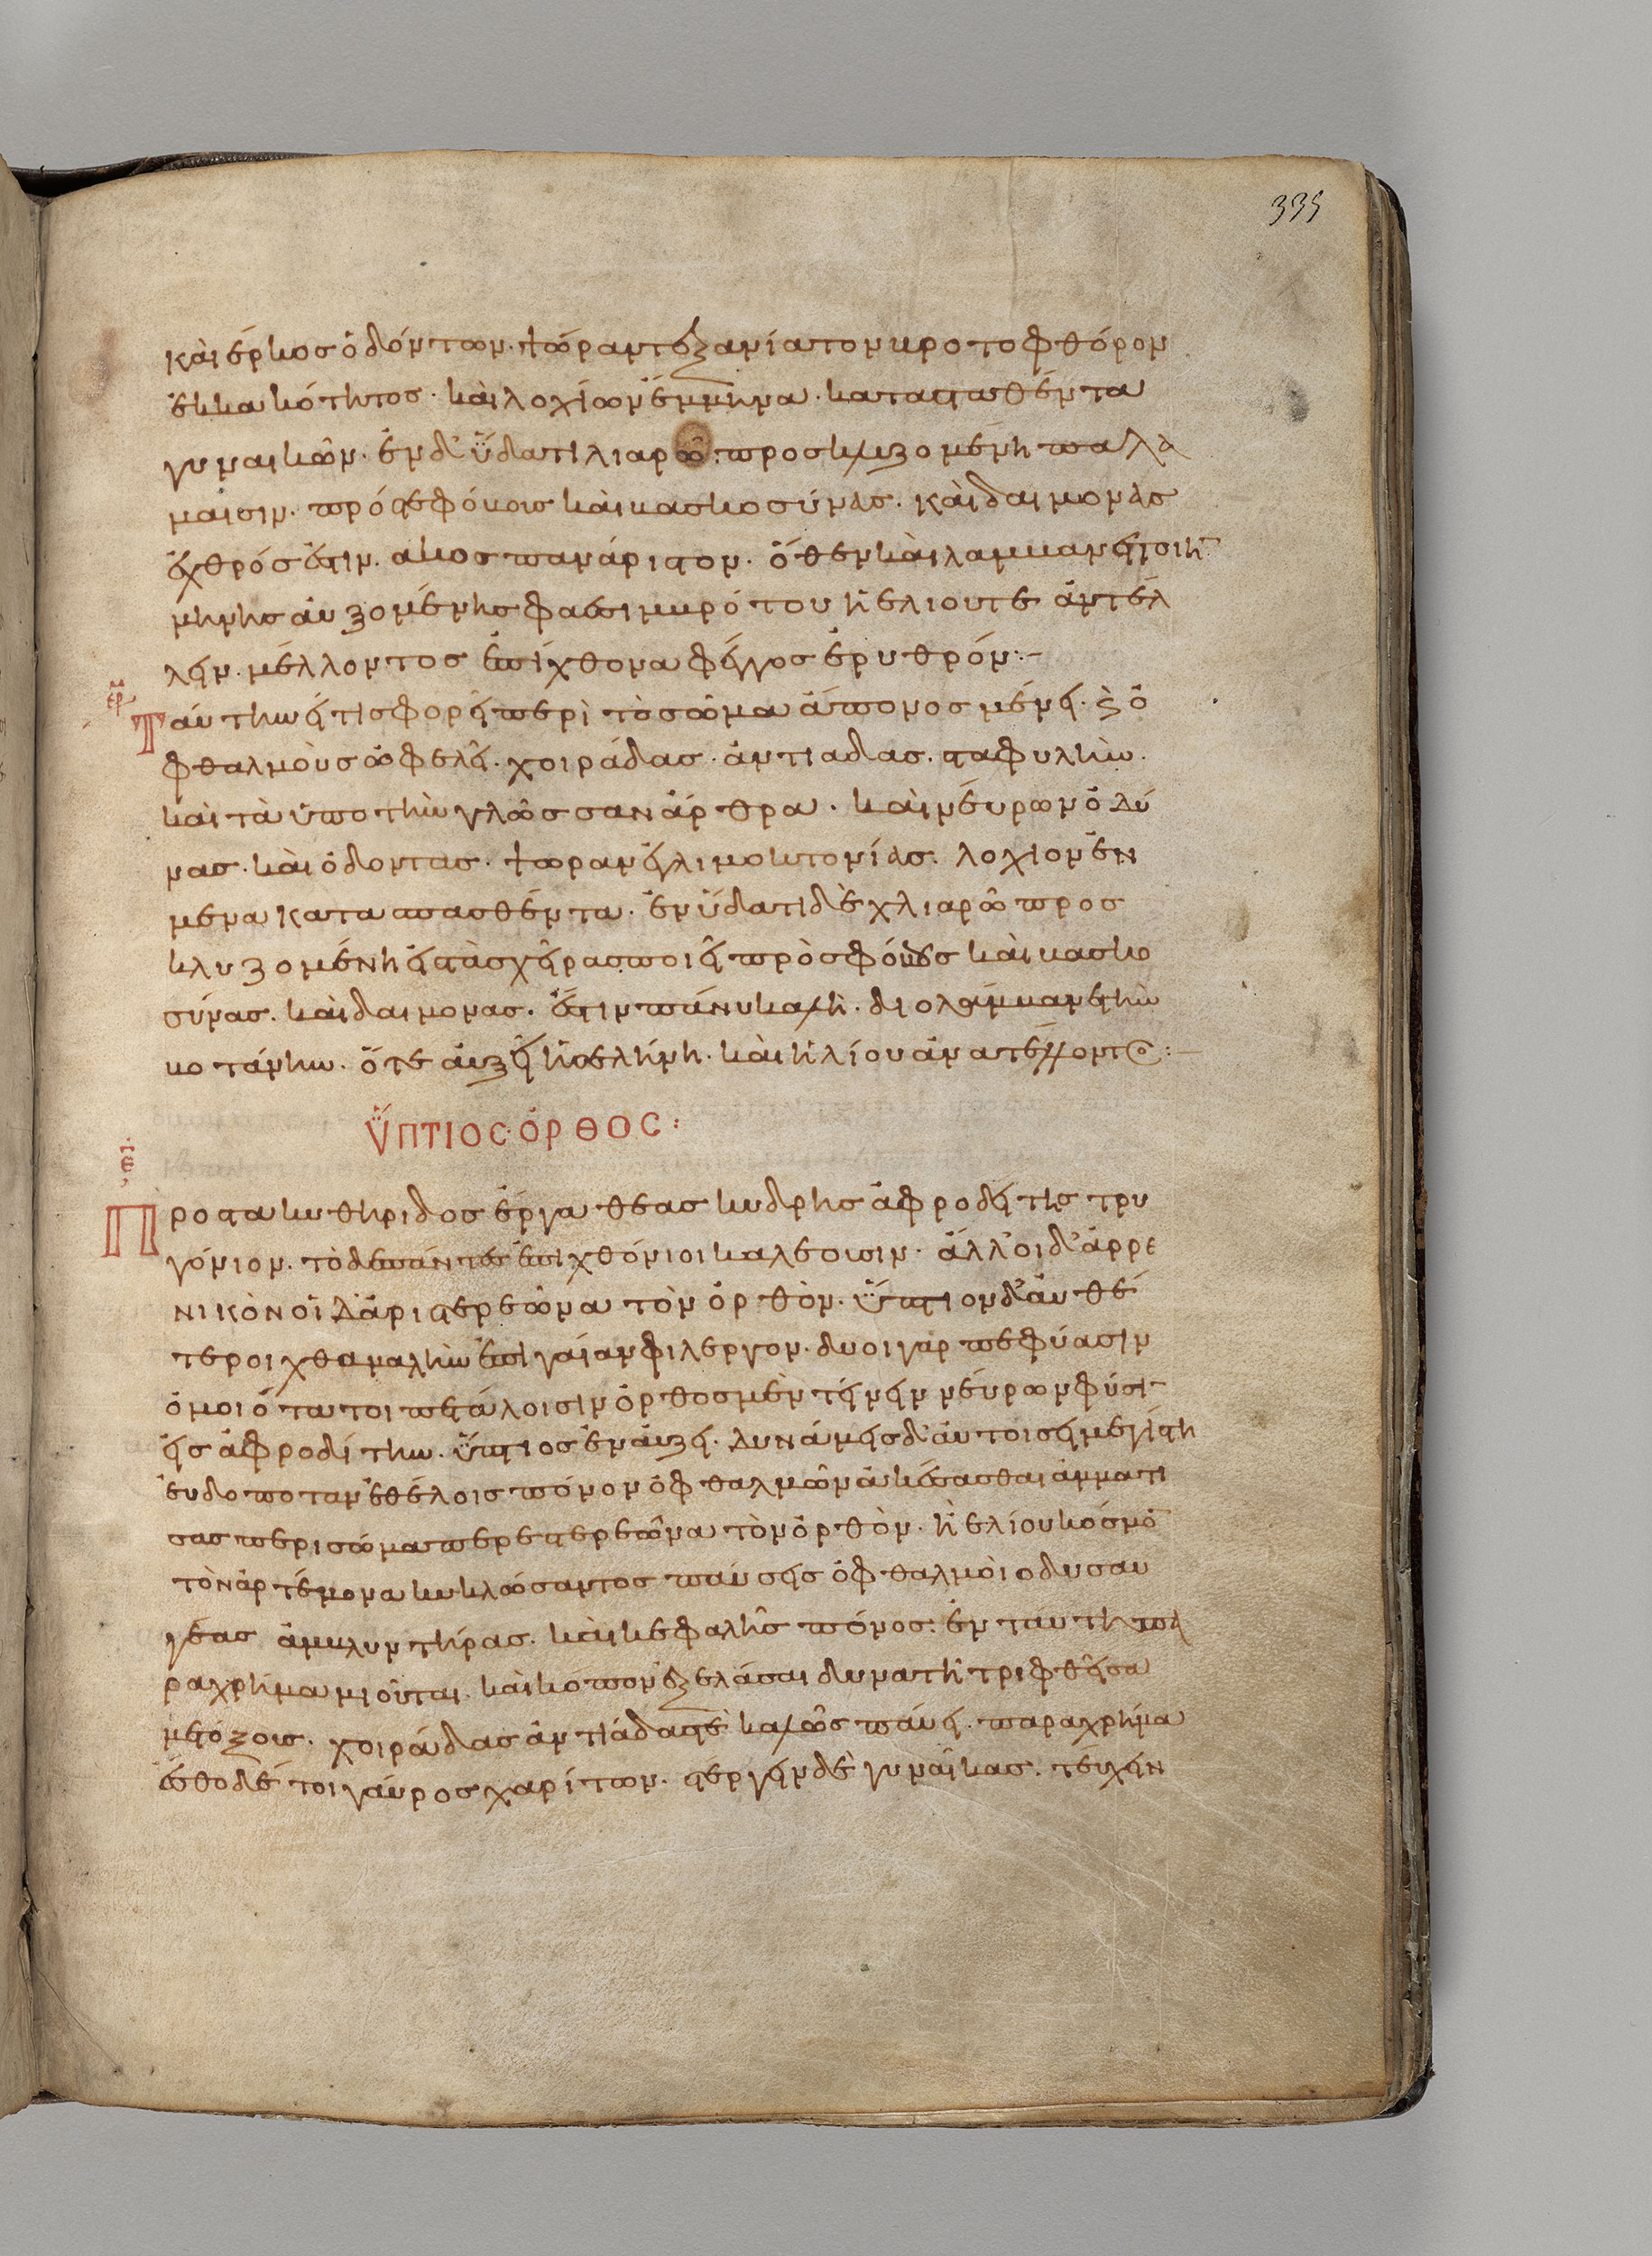 335
καὶ ἕρκος ὀδόντων· ψώραν τ᾽ ἐξανίατον βροτοφθόρον
ἐκ κακότητος· καὶ λοχίων ἔμμηνα· καταπασθέντα
γυναικῶν· ἐν δ᾽ ὕδατι λιαρῶ· προσκλυζομένη παλα
μαισιν· πρός τε φόβοις καὶ βασκοσύνας· καὶ δαίμονας
ἐχθρός ἐστιν· ακος παναριστον· ὅθεν καὶ λαμβάνει
μήνης αὐξομένης φαεσιμβρότου ἠελίου τε ἀντέλ
λειν· μέλλοντος ἐπι χθονα φέγγος ἐρυθρόν:–
ἑρμ
Ταύτην εἴ τις φορεῖ περὶ τὸ σῶμα ἄπονος μένει· καὶ ὀ
φθαλμοὺς ὠφελεῖ· χοιράδας· ἀντιαδας· σταφυλὴν·
καὶ τὰ ὑπο τὴν γλῶσσαν ἄρθρα· καὶ νεύρων ὀδύ
νας· καὶ ὀδοντας· ψωραν λοχιον ἐν
μενα καταπασθέντα· ἐν ὕδατι δὲ χλιαρῶ προσ
κλυζομένη εἰς τὰς χεῖρας ποιεῖ πρὸς φόβους καὶ βασκο
σύνας· καὶ δαιμονας· ἐστιν πάνυ καλὴ· διο λάμβανε τὴν
βοτάνην· ὅτε αὔξει ἡ σελήνη· καὶ ἡλίου ἀνατέλλοντος:–
ὝΠΤΙΟC· ὌΡΘΟC:
Προστακυθηριδος ἔργα θεας κυδρης ἀφροδείτης τρυ
γόνιον· τὸ δε πάντες ἐπιχθόνιοι καλεουσιν· ἄλλοι δ᾽ ἀρρε
νικὸν οἱ δ᾽ ἀριστερεῶνα τὸν ὀρθὸν· ὕπτιον δ᾽ αὖθ ἕ
τεροι χθαμαλὴν ἐπὶ γαίαν φιλεργον· δυοι γὰρ πεφύασιν
ὁμοιότατοι πετάλοισιν ὀρθος μὲν τείνειν νεύρων φύσι
εἰς ἀφροδίτην· ὕπτιος ἐν αὔξει· δυνάμεις δ᾽ αὐτοις εἰ μεγίστη
εὐδοποταν ἐθέλοις πόνον ὀφθαλμῶν ἀκέσασθαι ἁμματι
σας περι σῶμα περεστερεῶνα τὸν ὀρθὸν· ἠελίου κόσμο
τὸν ἀρτέμονα κυκλώσαντος παύσεις ὀφθαλμοὶ οδυσαυ
γέας ἀμβλυντῆρας· καὶ κεφαλῆς πόνος· ἐν ταύτη πα
ραχρῆμα μιοῦται· καὶ κόπον ἐξελάσαι δυνατὴ τριφθεῖσα
μετόξοις· χοιράδας ἀντιάδας τὲ καλῶς παύει· παραχρῆμα
ὤθο δέ τοι γαῦρος χαρίτων· στέργειν δὲ γυναῖκας· τεύχειν